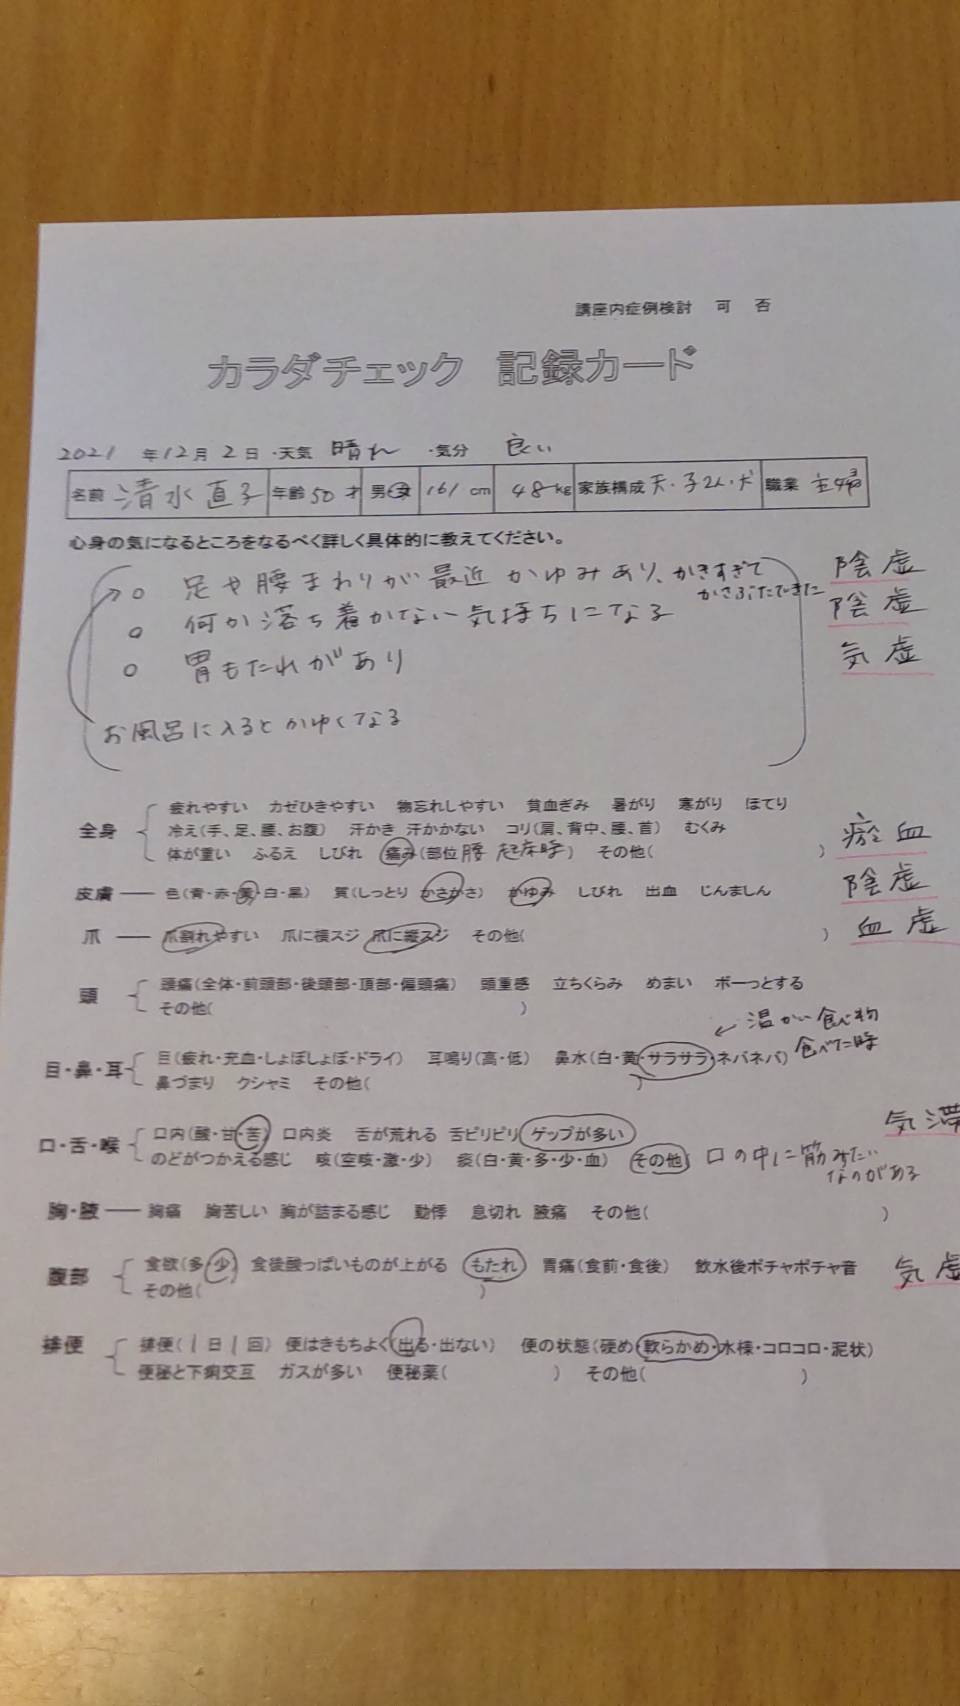 講座内症例検討 可 否
カラダチェック 記録カード
2021 年12月 2日・天気 晴れ ・気分 良い
名前 清水直子 年齢 50才 男・女 161cm 48kg 家族構成 夫・子2人・犬 職業 主婦
心身の気になるところをなるべく詳しく具体的に教えてください。
○ 足や腰まわりが最近かゆみあり、かきすぎて 陰虚
かさぶたできた
○ 何か落ち着かない気持ちになる 陰虚
○ 胃もたれがあり 気虚
お風呂に入るとかゆくなる
全身 疲れやすい カゼひきやすい 物忘れしやすい 貧血ぎみ 暑がり 寒がり ほてり
冷え(手、足、腰、お腹) 汗かき 汗かかない コリ(肩、背中、腰、首) むくみ
体が重い ふるえ しびれ 痛み(部位 腰 起床時) その他( ) 瘀血
皮膚 色(青・赤・黄・白・黒) 質(しっとり かさかさ) かゆみ しびれ 出血 じんましん 陰虚
爪 爪割れやすい 爪に横スジ 爪に縦スジ その他( ) 血虚
頭 頭痛(全体・前頭部・後頭部・頂部・偏頭痛) 頭重感 立ちくらみ めまい ボーっとする
その他( )
← 温かい食べ物
食べた時
目・鼻・耳 目(疲れ・充血・しょぼしょぼ・ドライ) 耳鳴り(高・低) 鼻水(白・黄・サラサラ・ネバネバ)
鼻づまり クシャミ その他( )
口・舌・喉 口内(酸・甘・苦) 口内炎 舌が荒れる 舌ピリピリ ゲップが多い 気滞
のどがつかえる感じ 咳(空咳・激・少) 痰(白・黄・多・少・血) その他 口の中に筋みたい
なのがある
胸・腋 胸痛 胸苦しい 胸が詰まる感じ 動悸 息切れ 腋痛 その他( )
腹部 食欲(多・少) 食後酸っぱいものが上がる もたれ 胃痛(食前・食後) 飲水後ポチャポチャ音 気虚
その他( )
排便 排便(1日1回) 便はきもちよく(出る・出ない) 便の状態(硬め・軟らかめ・水様・コロコロ・泥状)
便秘と下痢交互 ガスが多い 便秘薬( ) その他( )